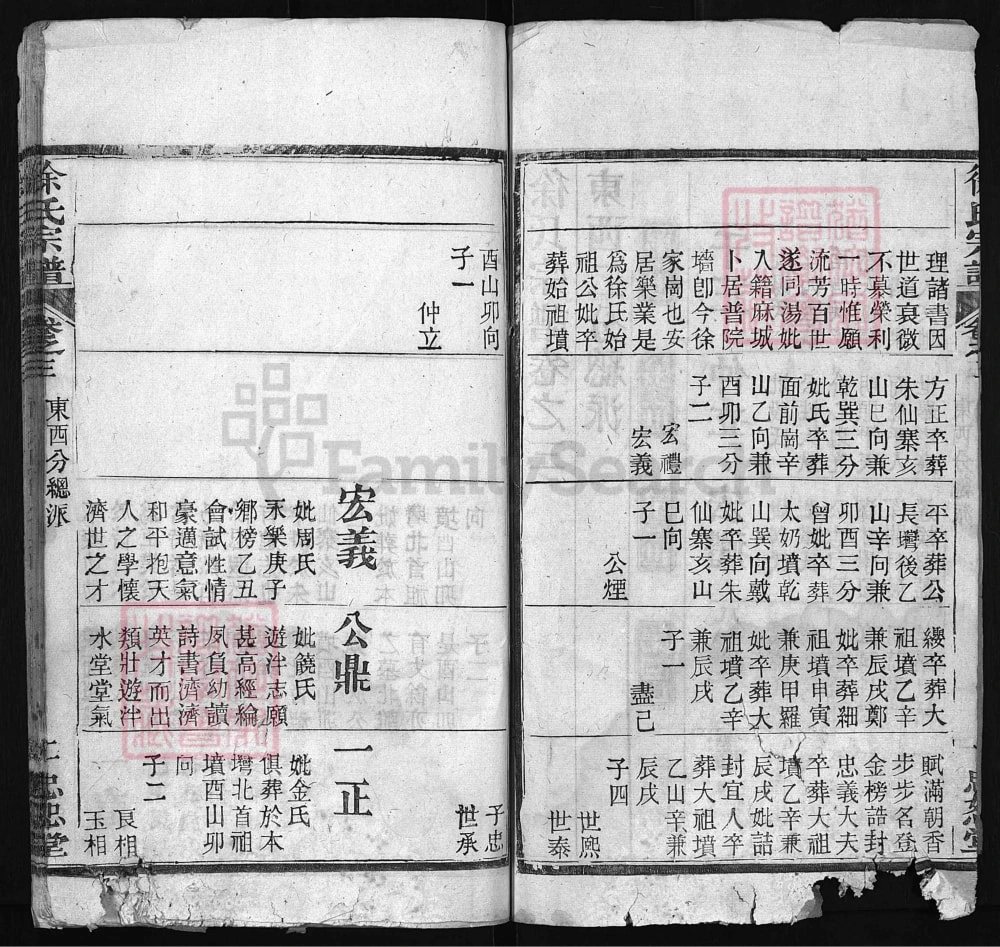 理諸書因
世道衰微
不慕榮利
一時惟願
流芳百世
遂同湯妣
入籍麻城
卜居普院
墻卽今徐
家崗也安
居樂業是
爲徐氏始
祖公妣卒
葬始祖墳
方正卒葬
朱仙寨亥
山巳向兼
乾巽三分
妣氏卒葬
面前崗辛
山乙向兼
酉卯三分
子二
宏禮
宏義
平卒葬公
長壪後乙
山辛向兼
卯酉三分
曾妣卒葬
太奶墳乾
山巽向戴
妣卒葬朱
仙寨亥山
巳向
子一
公煙
纓卒葬大
祖墳乙辛
兼辰戌鄭
妣卒葬細
祖墳申寅
兼庚甲羅
妣卒葬大
祖墳乙辛
兼辰戌
子一
盡己
賦滿朝香
步步名登
金榜誥封
忠義大夫
卒葬大祖
墳乙辛兼
辰戌妣誥
封宜人卒
葬大祖墳
乙山辛兼
辰戌
子四
世熈
世泰
酉山卯向
子一
仲立
宏義
妣周氏
永樂庚子
鄉榜乙丑
會試性情
豪邁意氣
和平抱天
人之學懷
濟世之才
公鼎
妣饒氏
遊泮志願
甚高經綸
夙負幼讀
詩書濟濟
英才而出
類壯遊泮
水堂堂氣
子忠
世承
一正
妣金氏
俱葬於本
壪北首祖
墳酉山卯
向
子二
艮相
玉相
徐氏宗譜
卷之三
東西分總派
忠恕堂
FamilySearch